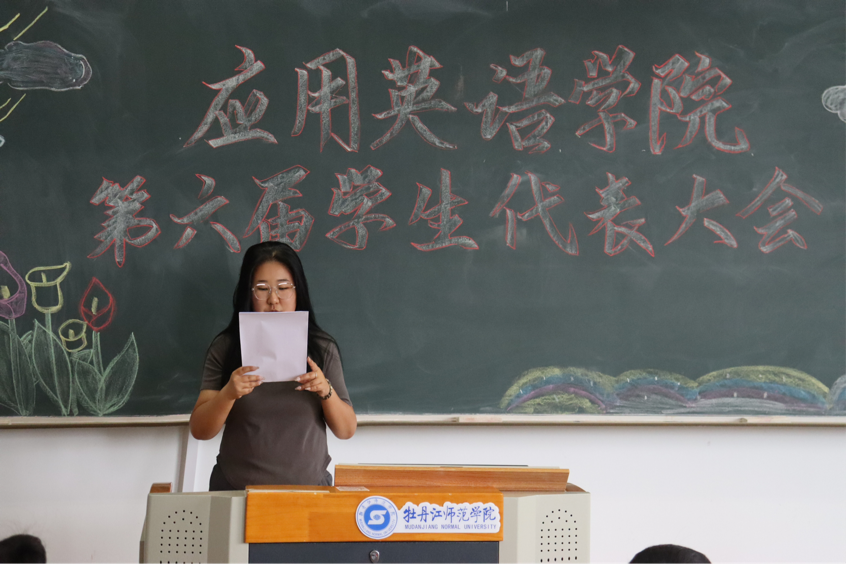 应用英语学院
第六届学生代表大会
牡丹江师范学院
MUDANJIANG NORMAL UNIVERSITY